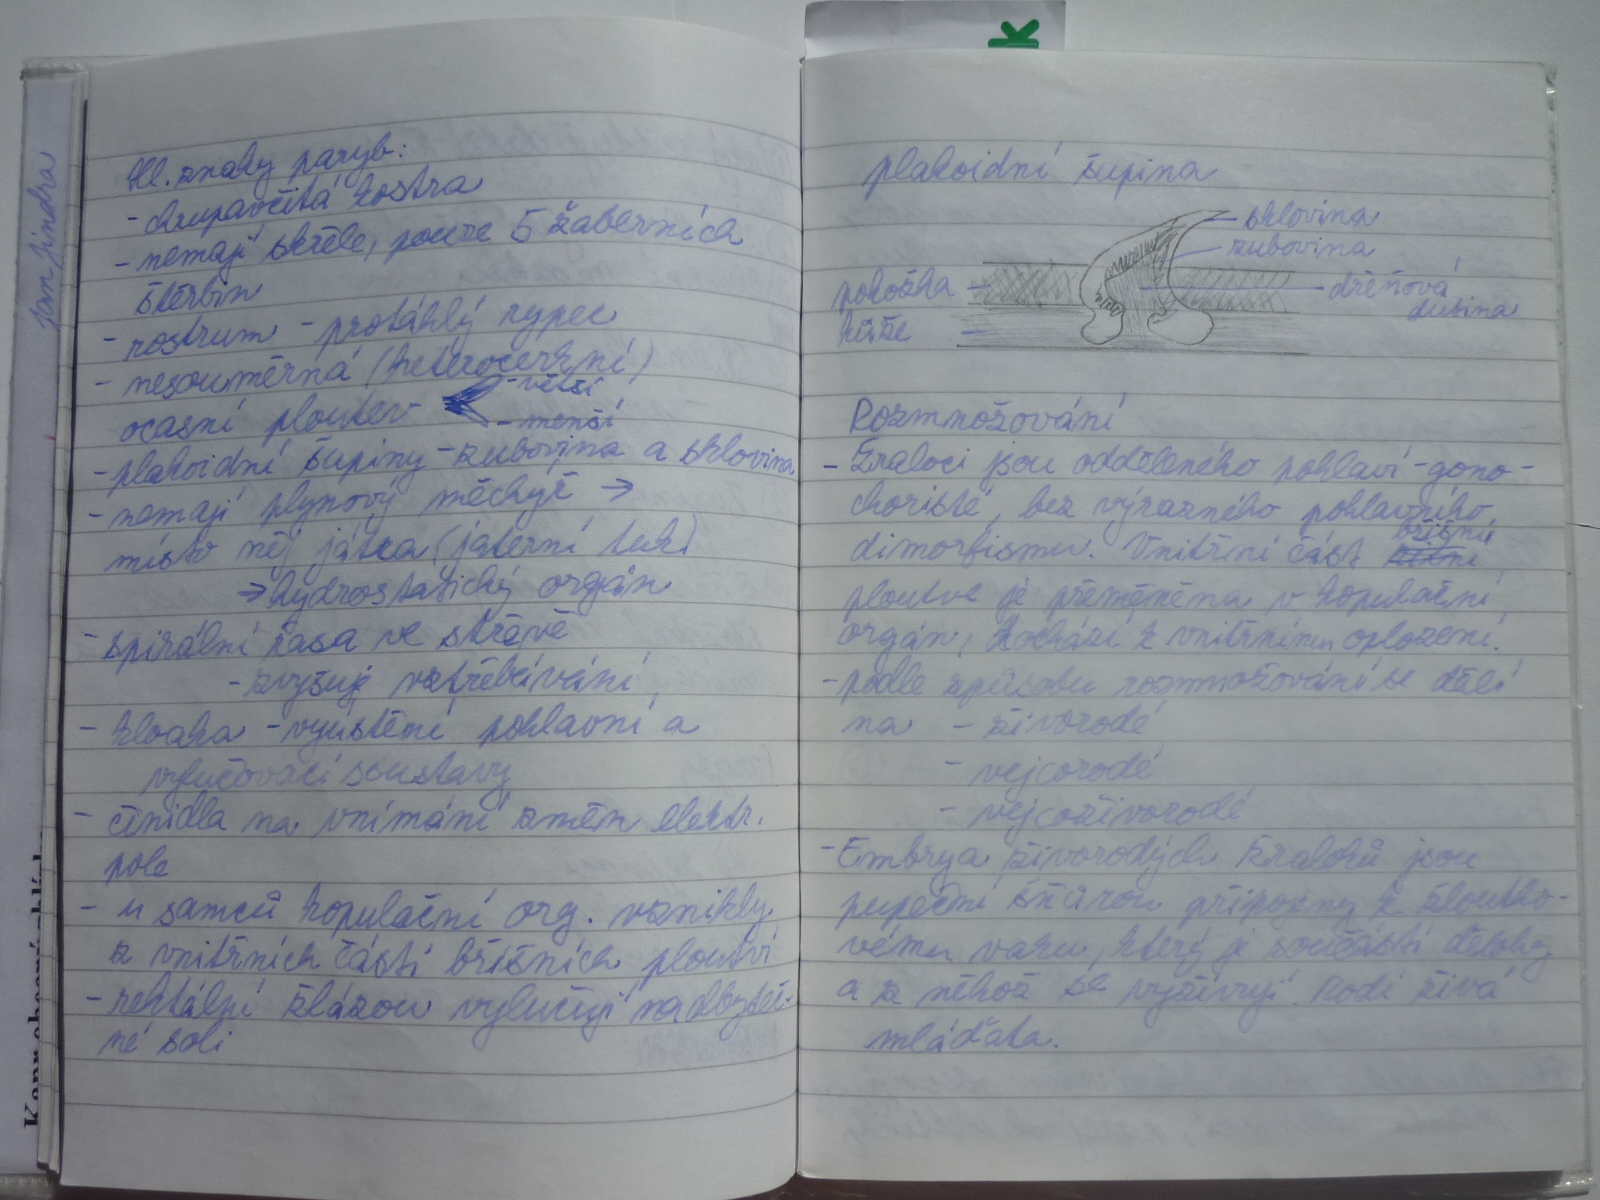 Hl. znaky paryb:
- chrupavčitá kostra
- nemají skřele, pouze 5 žaberních
štěrbin
- rostrum - protáhlý rypec
- nesouměrná (heterocerkní)
ocasní ploutev
- větší
- menší
- plakoidní šupiny - zubovina a sklovina
- nemají plynový měchýř →
místo něj játra (jaterní tuk)
→ hydrostatický orgán
- spirální řasa ve střevě
- zvyšuje vstřebávání
- kloaka - vyústění pohlavní a
vylučovací soustavy
- čidla na vnímání změn elektr.
pole
- u samců kopulační org. vznikly
z vnitřních částí břišních ploutví
- rektální žlázou vylučují nadbyteč-
né soli
plakoidní šupina
sklovina
zubovina
pokožka
dřeňová
dutina
kůže
Rozmnožování
- Žraloci jsou odděleného pohlaví - gono-
choristé, bez výrazného pohlavního
břišní
dimorfismu. Vnitřní část
ploutve je přeměněna v kopulační
orgán, dochází k vnitřnímu oplození.
- podle způsobu rozmnožování se dělí
na - živorodé
- vejcorodé
- vejcoživorodé
- Embrya živorodých žraloků jsou
pupeční šňůrou připojeny k žloutko-
vému vaku, který je součástí dělohy
a z něhož se vyživují. Rodí živá
mláďata.
Jan Jindra
K